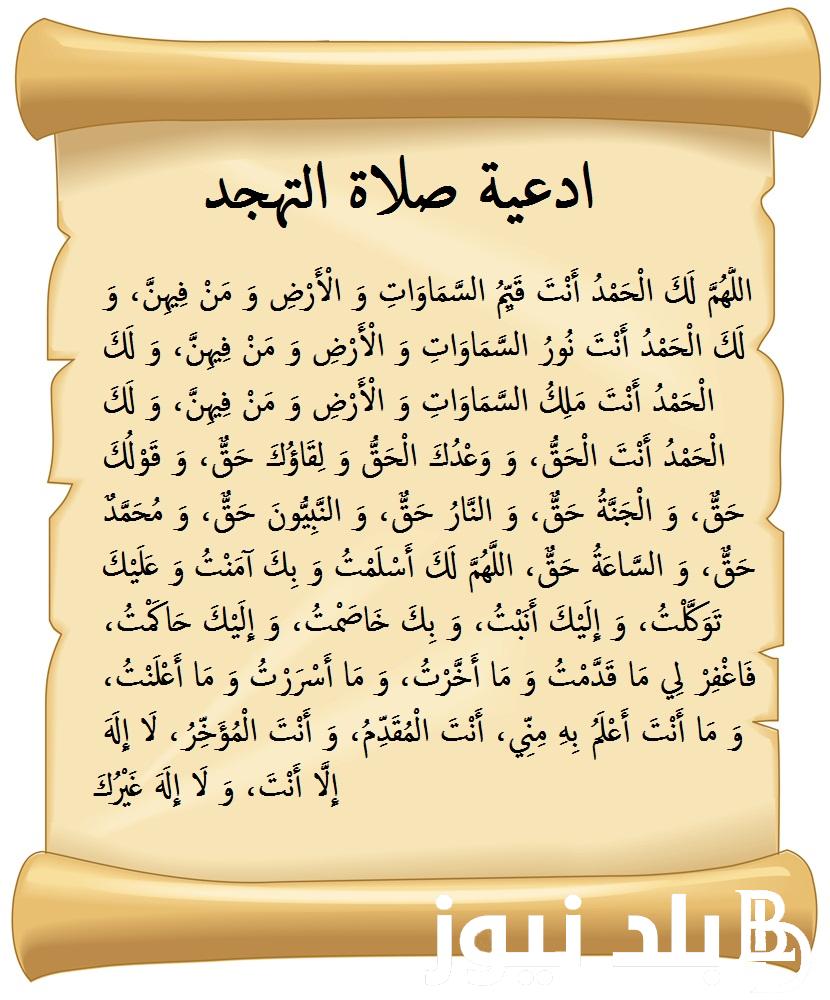 ادعية صلاة التهجد
اللَّهُمَّ لَكَ الْحَمْدُ أَنْتَ قَيِّمُ السَّمَاوَاتِ وَ الْأَرْضِ وَ مَنْ فِيهِنَّ، وَ
لَكَ الْحَمْدُ أَنْتَ نُورُ السَّمَاوَاتِ وَ الْأَرْضِ وَ مَنْ فِيهِنَّ، وَ لَكَ
الْحَمْدُ أَنْتَ مَلِكُ السَّمَاوَاتِ وَ الْأَرْضِ وَ مَنْ فِيهِنَّ، وَ لَكَ
الْحَمْدُ أَنْتَ الْحَقُّ، وَ وَعْدُكَ الْحَقُّ وَ لِقَاؤُكَ حَقٌّ، وَ قَوْلُكَ
حَقٌّ، وَ الْجَنَّةُ حَقٌّ، وَ النَّارُ حَقٌّ، وَ النَّبِيُّونَ حَقٌّ، وَ مُحَمَّدٌ
حَقٌّ، وَ السَّاعَةُ حَقٌّ، اللَّهُمَّ لَكَ أَسْلَمْتُ وَ بِكَ آمَنْتُ وَ عَلَيْكَ
تَوَكَّلْتُ، وَ إِلَيْكَ أَنَبْتُ، وَ بِكَ خَاصَمْتُ، وَ إِلَيْكَ حَاكَمْتُ،
فَاغْفِرْ لِي مَا قَدَّمْتُ وَ مَا أَخَّرْتُ، وَ مَا أَسْرَرْتُ وَ مَا أَعْلَنْتُ،
وَ مَا أَنْتَ أَعْلَمُ بِهِ مِنِّي، أَنْتَ الْمُقَدِّمُ، وَ أَنْتَ الْمُؤَخِّرُ، لَا إِلَهَ
إِلَّا أَنْتَ، وَ لَا إِلَهَ غَيْرُكَ
بلد نيوز